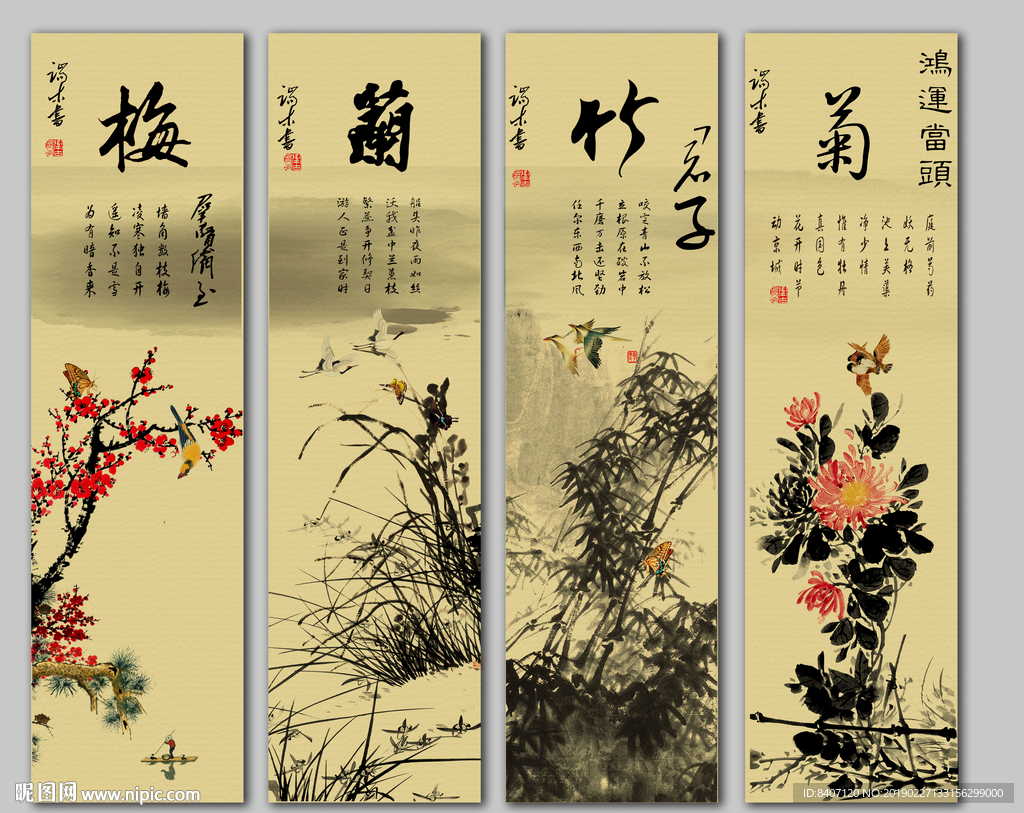 梅
端木書
墙角数枝梅
凌寒独自开
遥知不是雪
为有暗香来
蘭
端木書
船头昨夜雨如丝
沃我盆中兰蕙枝
繁蕊争开修契日
游人正是到家时
君子
竹
端木書
咬定青山不放松
立根原在破岩中
千磨万击还坚劲
任尔东西南北风
鴻運當頭
菊
端木書
庭前芍药
妖无格
池上芙蕖
净少情
惟有牡丹
真国色
花开时节
动京城
昵图网 www.nipic.com
ID:8407120 NO:20190227133156299000